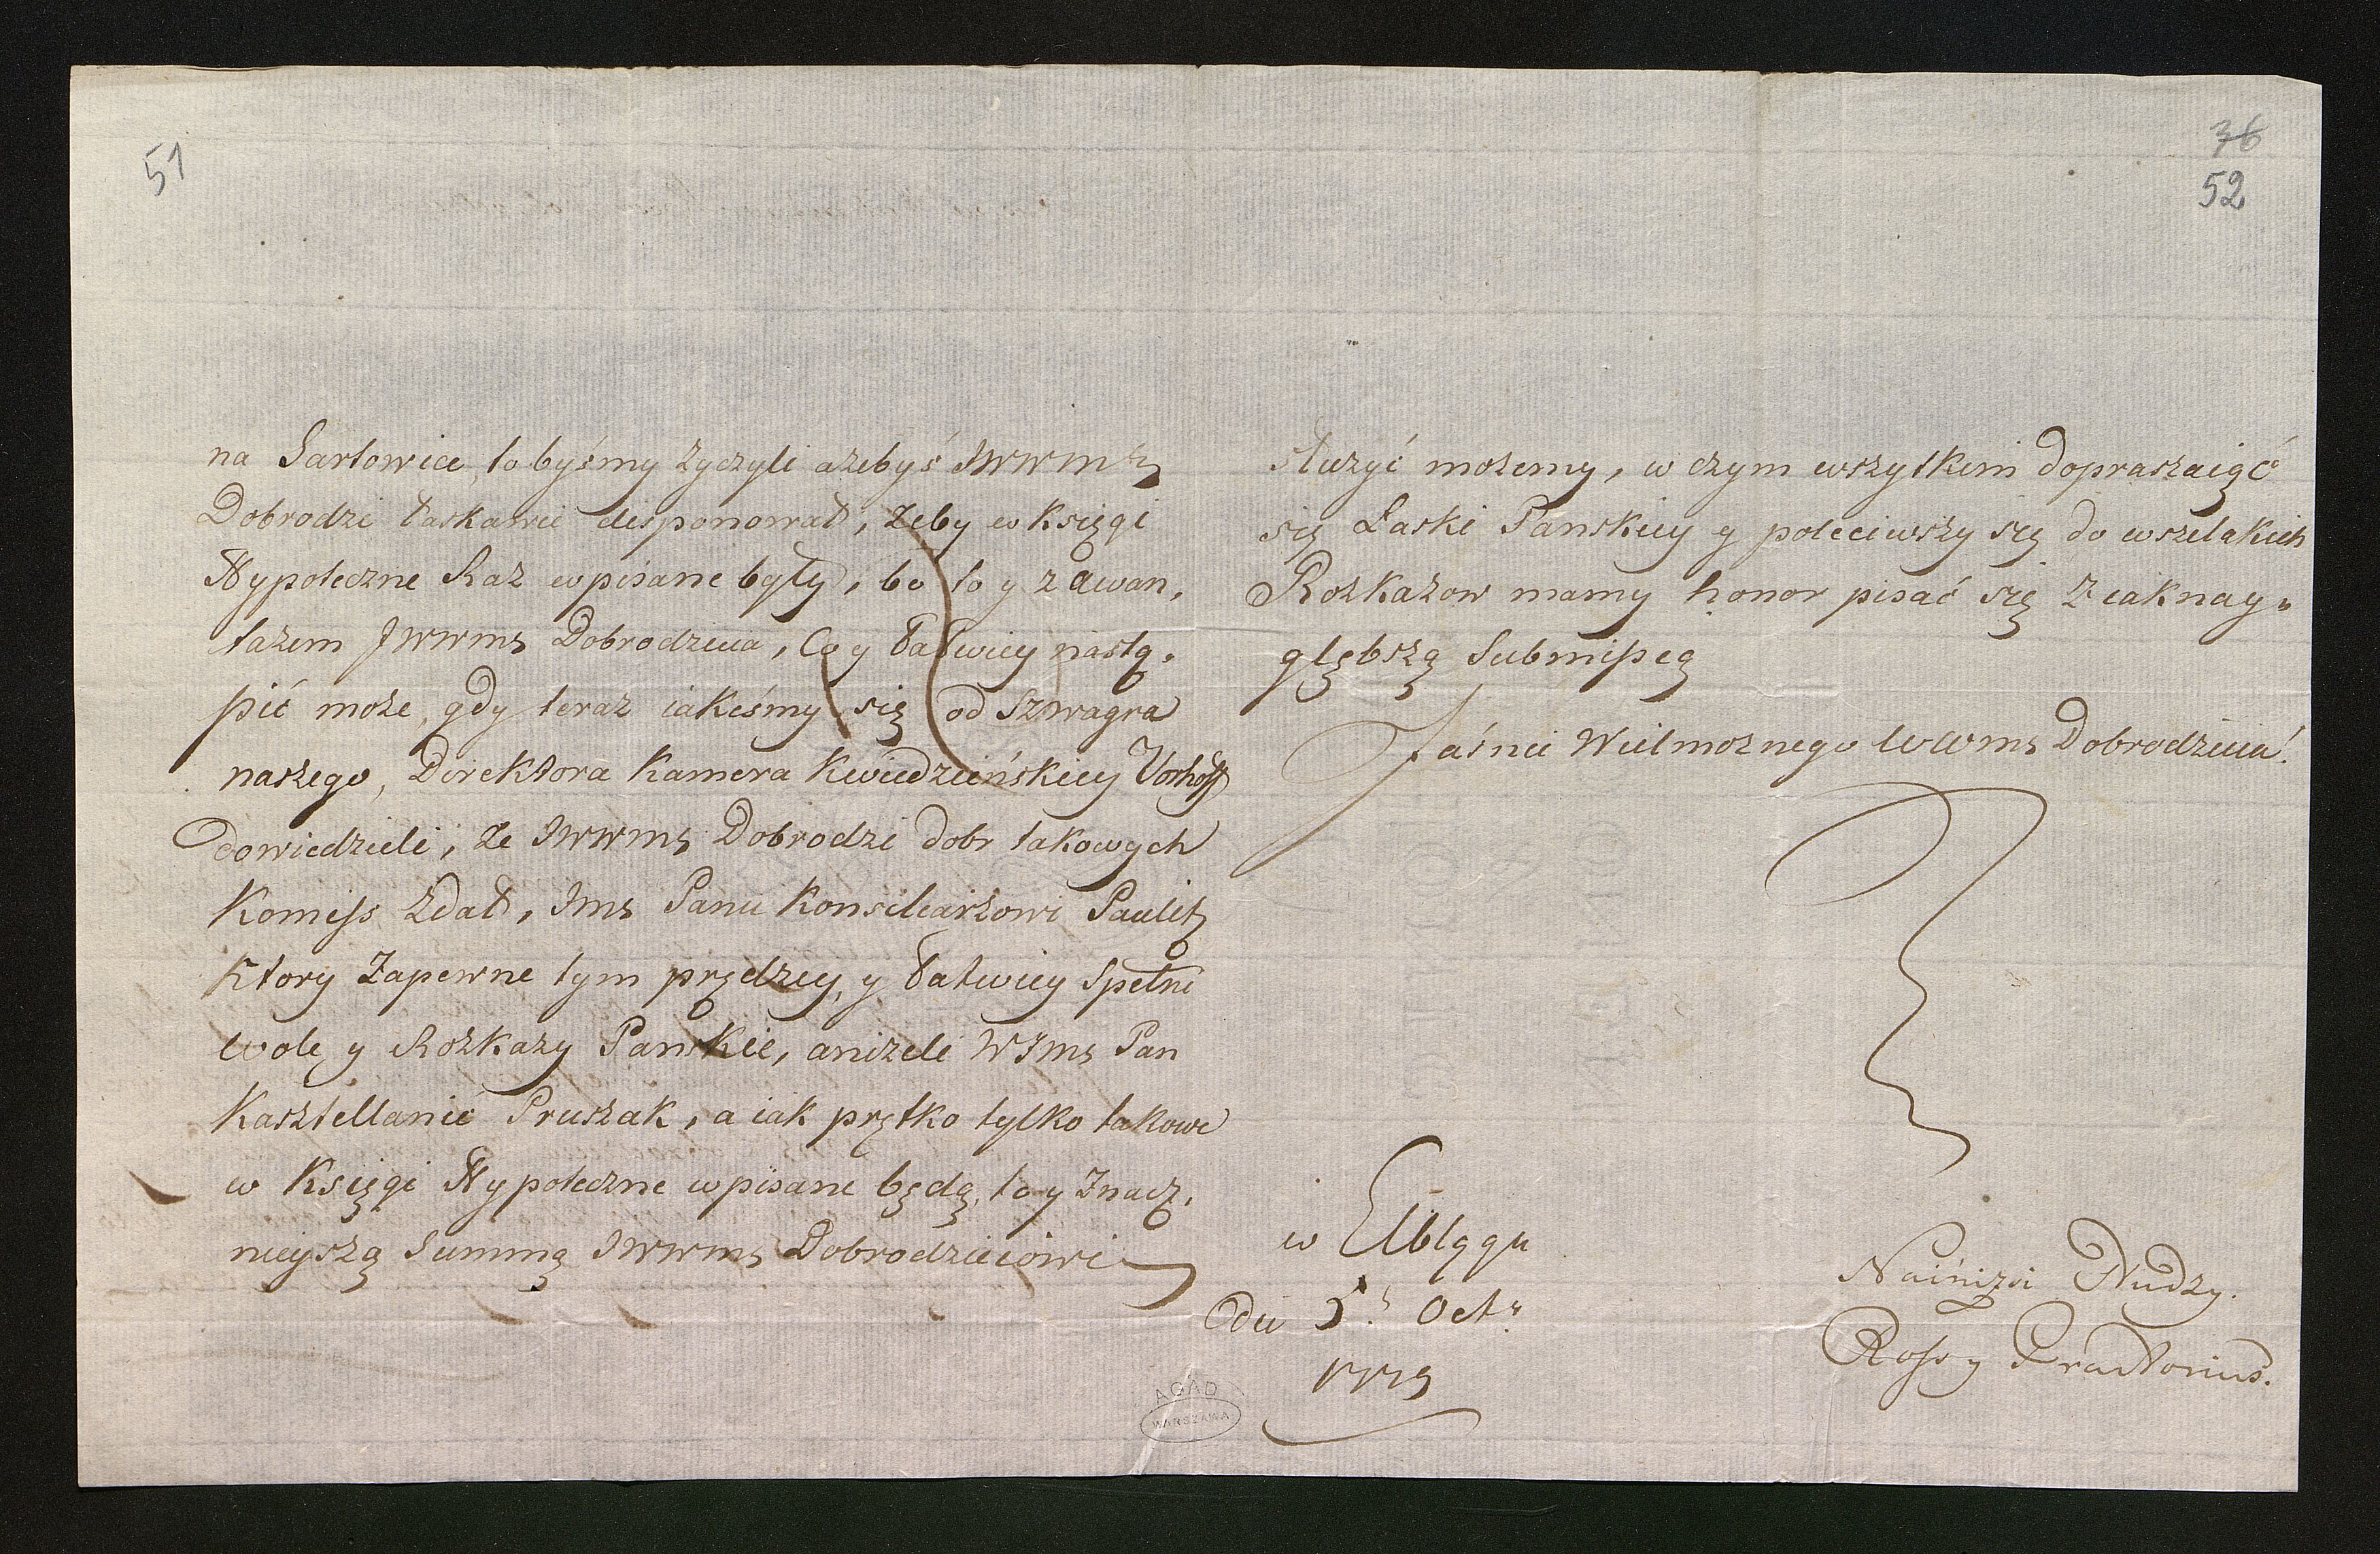 51
na Sartowice, to byśmy życzyli ażebyś JWWmś
Dobrodzi łaskawie disponował, żeby w Księgi
Hypoteczne Raz wpisane były, bo to y z awan,
tażem JWWms Dobrodzieia, Co y łatwiey nastą,
pić może, gdy teraz iakeśmy się od Szwagra
naszego, Direktora Kamera Kwiedzieńskiey Vorhoff
dowiedzieli, że JWWms Dobrodzi dobr takowych
Komiss Zdał, Jms Panu Konsiliarzowi Paulitz
Ktory Zapewne tym prędzey, y łatwiey Spełni
wolę y Rozkazy Panskie, aniżeli WJms Pan
Kasztellanic Pruszak, a iak prętko tylko takowe
w Księgi Hypoteczne wpisane będą, to y Znacz,
nieyszą Summą JWWms Dobrodzieiowi
36
52
służyć możemy, w czym wszytkim dopraszaiąć
się Łaski Panskiey y poleciwszy się do wszelakich
Rozkazow mamy honor pisać się Z iaknay,
głębszą Submissią
Jaśnie Wielmożnego WWms Dobrodzieia.
w Elblągu
du 5. Octr
1779
Nainiżsi Słudzy.
Rosoy Prætorius.
AGAD
WARSZAWA